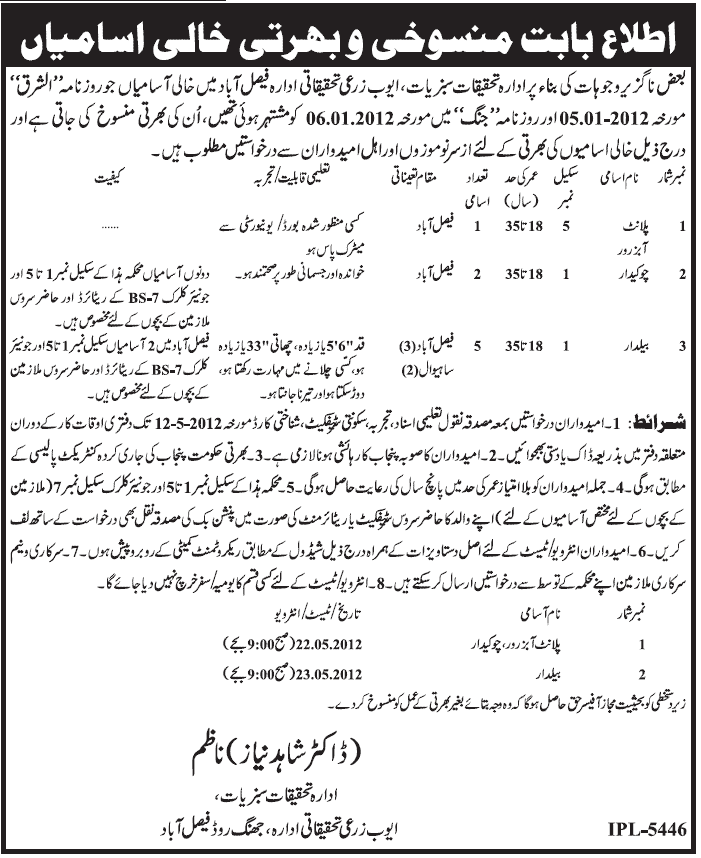 اطلاع بابت منسوخی و بھرتی خالی اسامیاں
بعض ناگزیر وجوہات کی بناء پر ادارہ تحقیقات سبزیات، ایوب زرعی تحقیقاتی ادارہ فیصل آباد میں خالی آسامیاں جو روزنامہ "الشرق"
مورخہ 05.01-2012 اور روزنامہ "جنگ" میں مورخہ 06.01.2012 کو مشتہر ہوئی تھیں، اُن کی بھرتی منسوخ کی جاتی ہے اور
درج ذیل خالی اسامیوں کی بھرتی کے لئے از سر نو موزوں اور اہل امیدواران سے درخواستیں مطلوب ہیں۔
نمبر شمار نام اسامی سکیل نمبر عمر کی حد (سال) تعداد اسامی مقام تعیناتی تعلیمی قابلیت/تجربہ کیفیت
1 پلانٹ آبزرور 5 18 تا 35 1 فیصل آباد کسی منظور شدہ بورڈ/یونیورسٹی سے میٹرک پاس ہو ......
2 چوکیدار 1 18 تا 35 2 فیصل آباد خواندہ اور جسمانی طور پر صحتمند ہو۔ دونوں آسامیاں محکمہ ہذا کے سکیل نمبر 1 تا 5 اور
جونیئر کلرک BS-7 کے ریٹائرڈ اور حاضر سروس
ملازمین کے بچوں کے لئے مخصوص ہیں۔
3 بیلدار 1 18 تا 35 5 فیصل آباد (3) قد "6'5 یا زیادہ، چھاتی "33 یا زیادہ فیصل آباد میں 2 آسامیاں سکیل نمبر 1 تا 5 اور جونیئر
ساہیوال (2) ہو، کسّی چلانے میں مہارت رکھتا ہو، کلرک BS-7 کے ریٹائرڈ اور حاضر سروس ملازمین
دوڑ سکتا ہو اور تیرنا جانتا ہو۔ کے بچوں کے لئے مخصوص ہیں۔
شرائط: 1۔ امیدواران درخواستیں بمعہ مصدقہ نقول تعلیمی اسناد، تجربہ، سکونتی سرٹیفکیٹ، شناختی کارڈ مورخہ 12-5-2012 تک دفتری اوقات کار کے دوران
متعلقہ دفتر میں بذریعہ ڈاک یا دستی بھجوائیں۔ 2۔ امیدواران کا صوبہ پنجاب کا رہائشی ہونا لازمی ہے۔ 3۔ بھرتی حکومت پنجاب کی جاری کردہ کنٹریکٹ پالیسی کے
مطابق ہوگی۔ 4۔ جملہ امیدواران کو بلا امتیاز عمر کی حد میں پانچ سال کی رعایت حاصل ہوگی۔ 5۔ محکمہ ہذا کے سکیل نمبر 1 تا 5 اور جونیئر کلرک سکیل نمبر 7 (ملازمین
کے بچوں کے لئے مختص آسامیوں کے لئے) اپنے والد کا حاضر سروس سرٹیفکیٹ یا ریٹائرمنٹ کی صورت میں پنشن بک کی مصدقہ نقل بھی درخواست کے ساتھ لف
کریں۔ 6۔ امیدواران انٹرویو/ٹیسٹ کے لئے اصل دستاویزات کے ہمراہ درج ذیل شیڈول کے مطابق ریکروٹمنٹ کمیٹی کے روبرو پیش ہوں۔ 7۔ سرکاری و نیم
سرکاری ملازمین اپنے محکمہ کے توسط سے درخواستیں ارسال کر سکتے ہیں۔ 8۔ انٹرویو/ٹیسٹ کے لئے کسی قسم کا یومیہ/سفر خرچ نہیں دیا جائے گا۔
نمبر شمار نام آسامی تاریخ/ٹیسٹ/انٹرویو
1 پلانٹ آبزرور، چوکیدار 22.05.2012 (صبح 9:00 بجے)
2 بیلدار 23.05.2012 (صبح 9:00 بجے)
زیر دستخطی کو بحیثیت مجاز آفیسر حق حاصل ہوگا کہ وہ وجہ بتائے بغیر بھرتی کے عمل کو منسوخ کر دے۔
(ڈاکٹر شاہد نیاز) ناظم
ادارہ تحقیقات سبزیات،
ایوب زرعی تحقیقاتی ادارہ، جھنگ روڈ فیصل آباد
IPL-5446